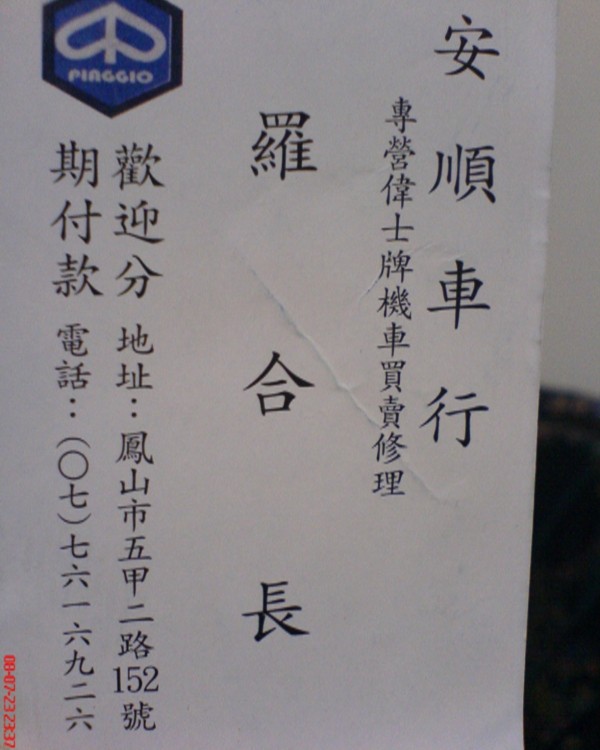 安順車行
專營偉士牌機車買賣修理
羅合長
歡迎分
期付款
地址：鳳山市五甲二路152號
電話：(〇七)七六一六九二六
PIAGGIO
08-07-23 23:37